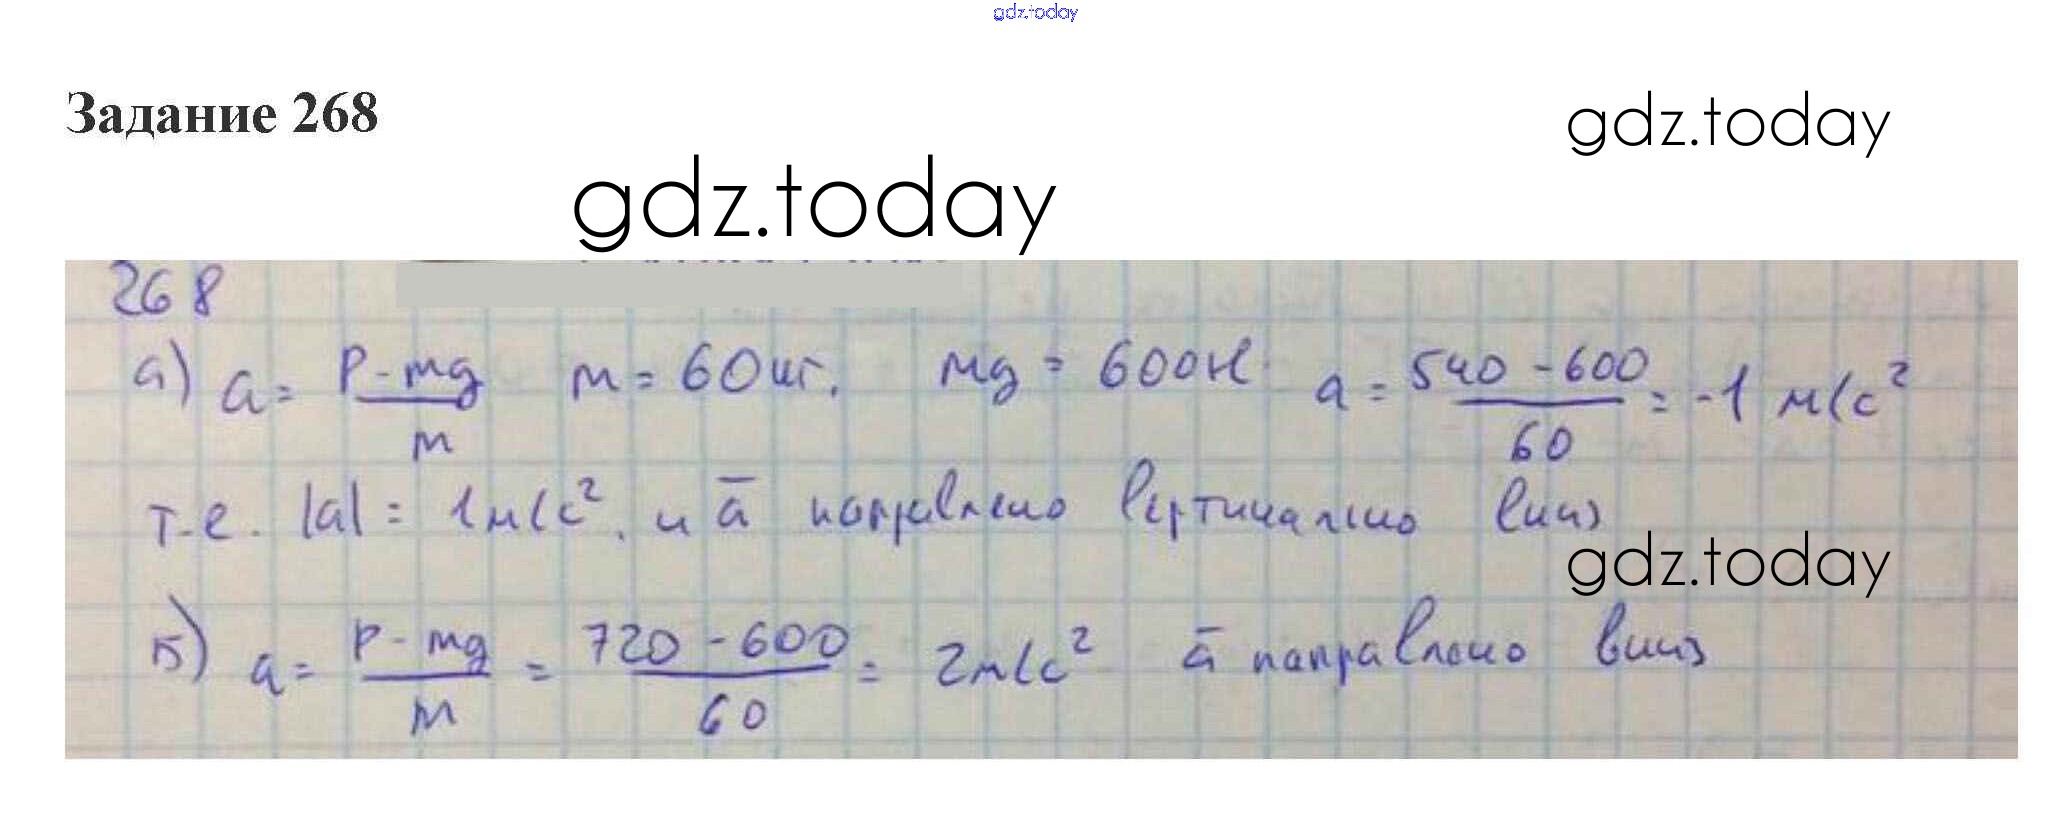 gdz.today
Задание 268
gdz.today
gdz.today
268
а) a = (P - mg)/m m = 60 кг. mg = 600Н. a = (540 - 600)/60 = -1 м/с²
т.е. |a| = 1 м/с². и a̅ направлено вертикально вниз
gdz.today
Б) a = (P - mg)/m = (720 - 600)/60 = 2м/с² a̅ направлено вниз